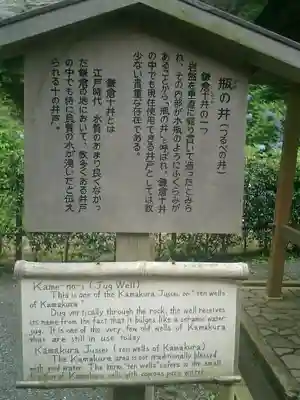 瓶の井(つるべの井)
鎌倉十井の一つ
岩盤を垂直に掘り貫いて造ったとみら
れ、その内部が水瓶のようにふくらみが
あることから、「瓶の井」と呼ばれ、鎌倉十井
の中でも現在使用できる井戸としては数
少ない貴重な存在である。
鎌倉十井とは
江戸時代、水質のあまり良くなかっ
た鎌倉の地において、数多くある井戸
の中でも特に良質の水が湧いたと伝え
られる十の井戸。
Kame-no-i (Jug Well)
This is one of the Kamakura Jussei or "ten wells
of Kamakura"
Dug vertically through the rock, the well receives
its name from the fact that it bulges like a ceramic water
jug. It is one of the very few old wells of Kamakura
that are still in use today
Kamakura Jussei (ten wells of Kamakura)
The Kamakura area is not traditionally blessed
with good water. The term "ten wells" refers to the small
number of Kamakura wells with